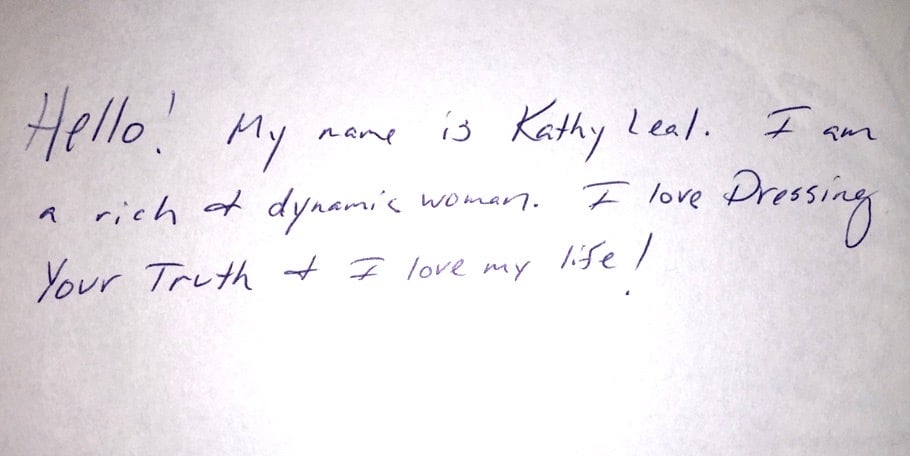 Hello! My name is Kathy Leal. I am
a rich & dynamic woman. I love Dressing
Your Truth & I love my life!